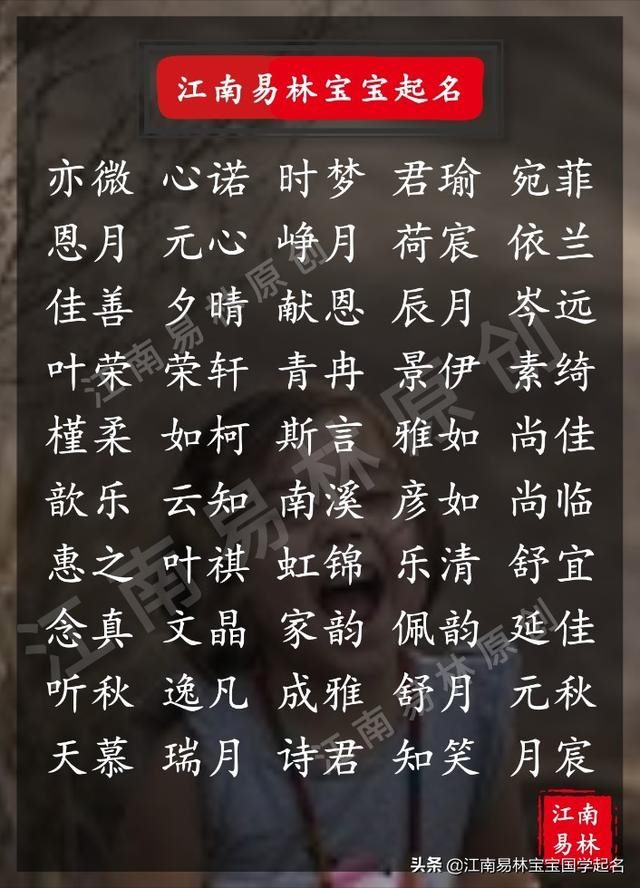 江南易林宝宝起名
亦微 心诺 时梦 君瑜 宛菲
恩月 元心 峥月 荷宸 依兰
佳善 夕晴 献恩 辰月 岑远
叶荣 荣轩 青冉 景伊 素绮
槿柔 如柯 斯言 雅如 尚佳
歆乐 云知 南溪 彦如 尚临
惠之 叶祺 虹锦 乐清 舒宜
念真 文晶 家韵 佩韵 延佳
听秋 逸凡 成雅 舒月 元秋
天慕 瑞月 诗君 知笑 月宸
江南易林原创
江南易林原创
江南易林原创
江南
易林
头条 @江南易林宝宝国学起名